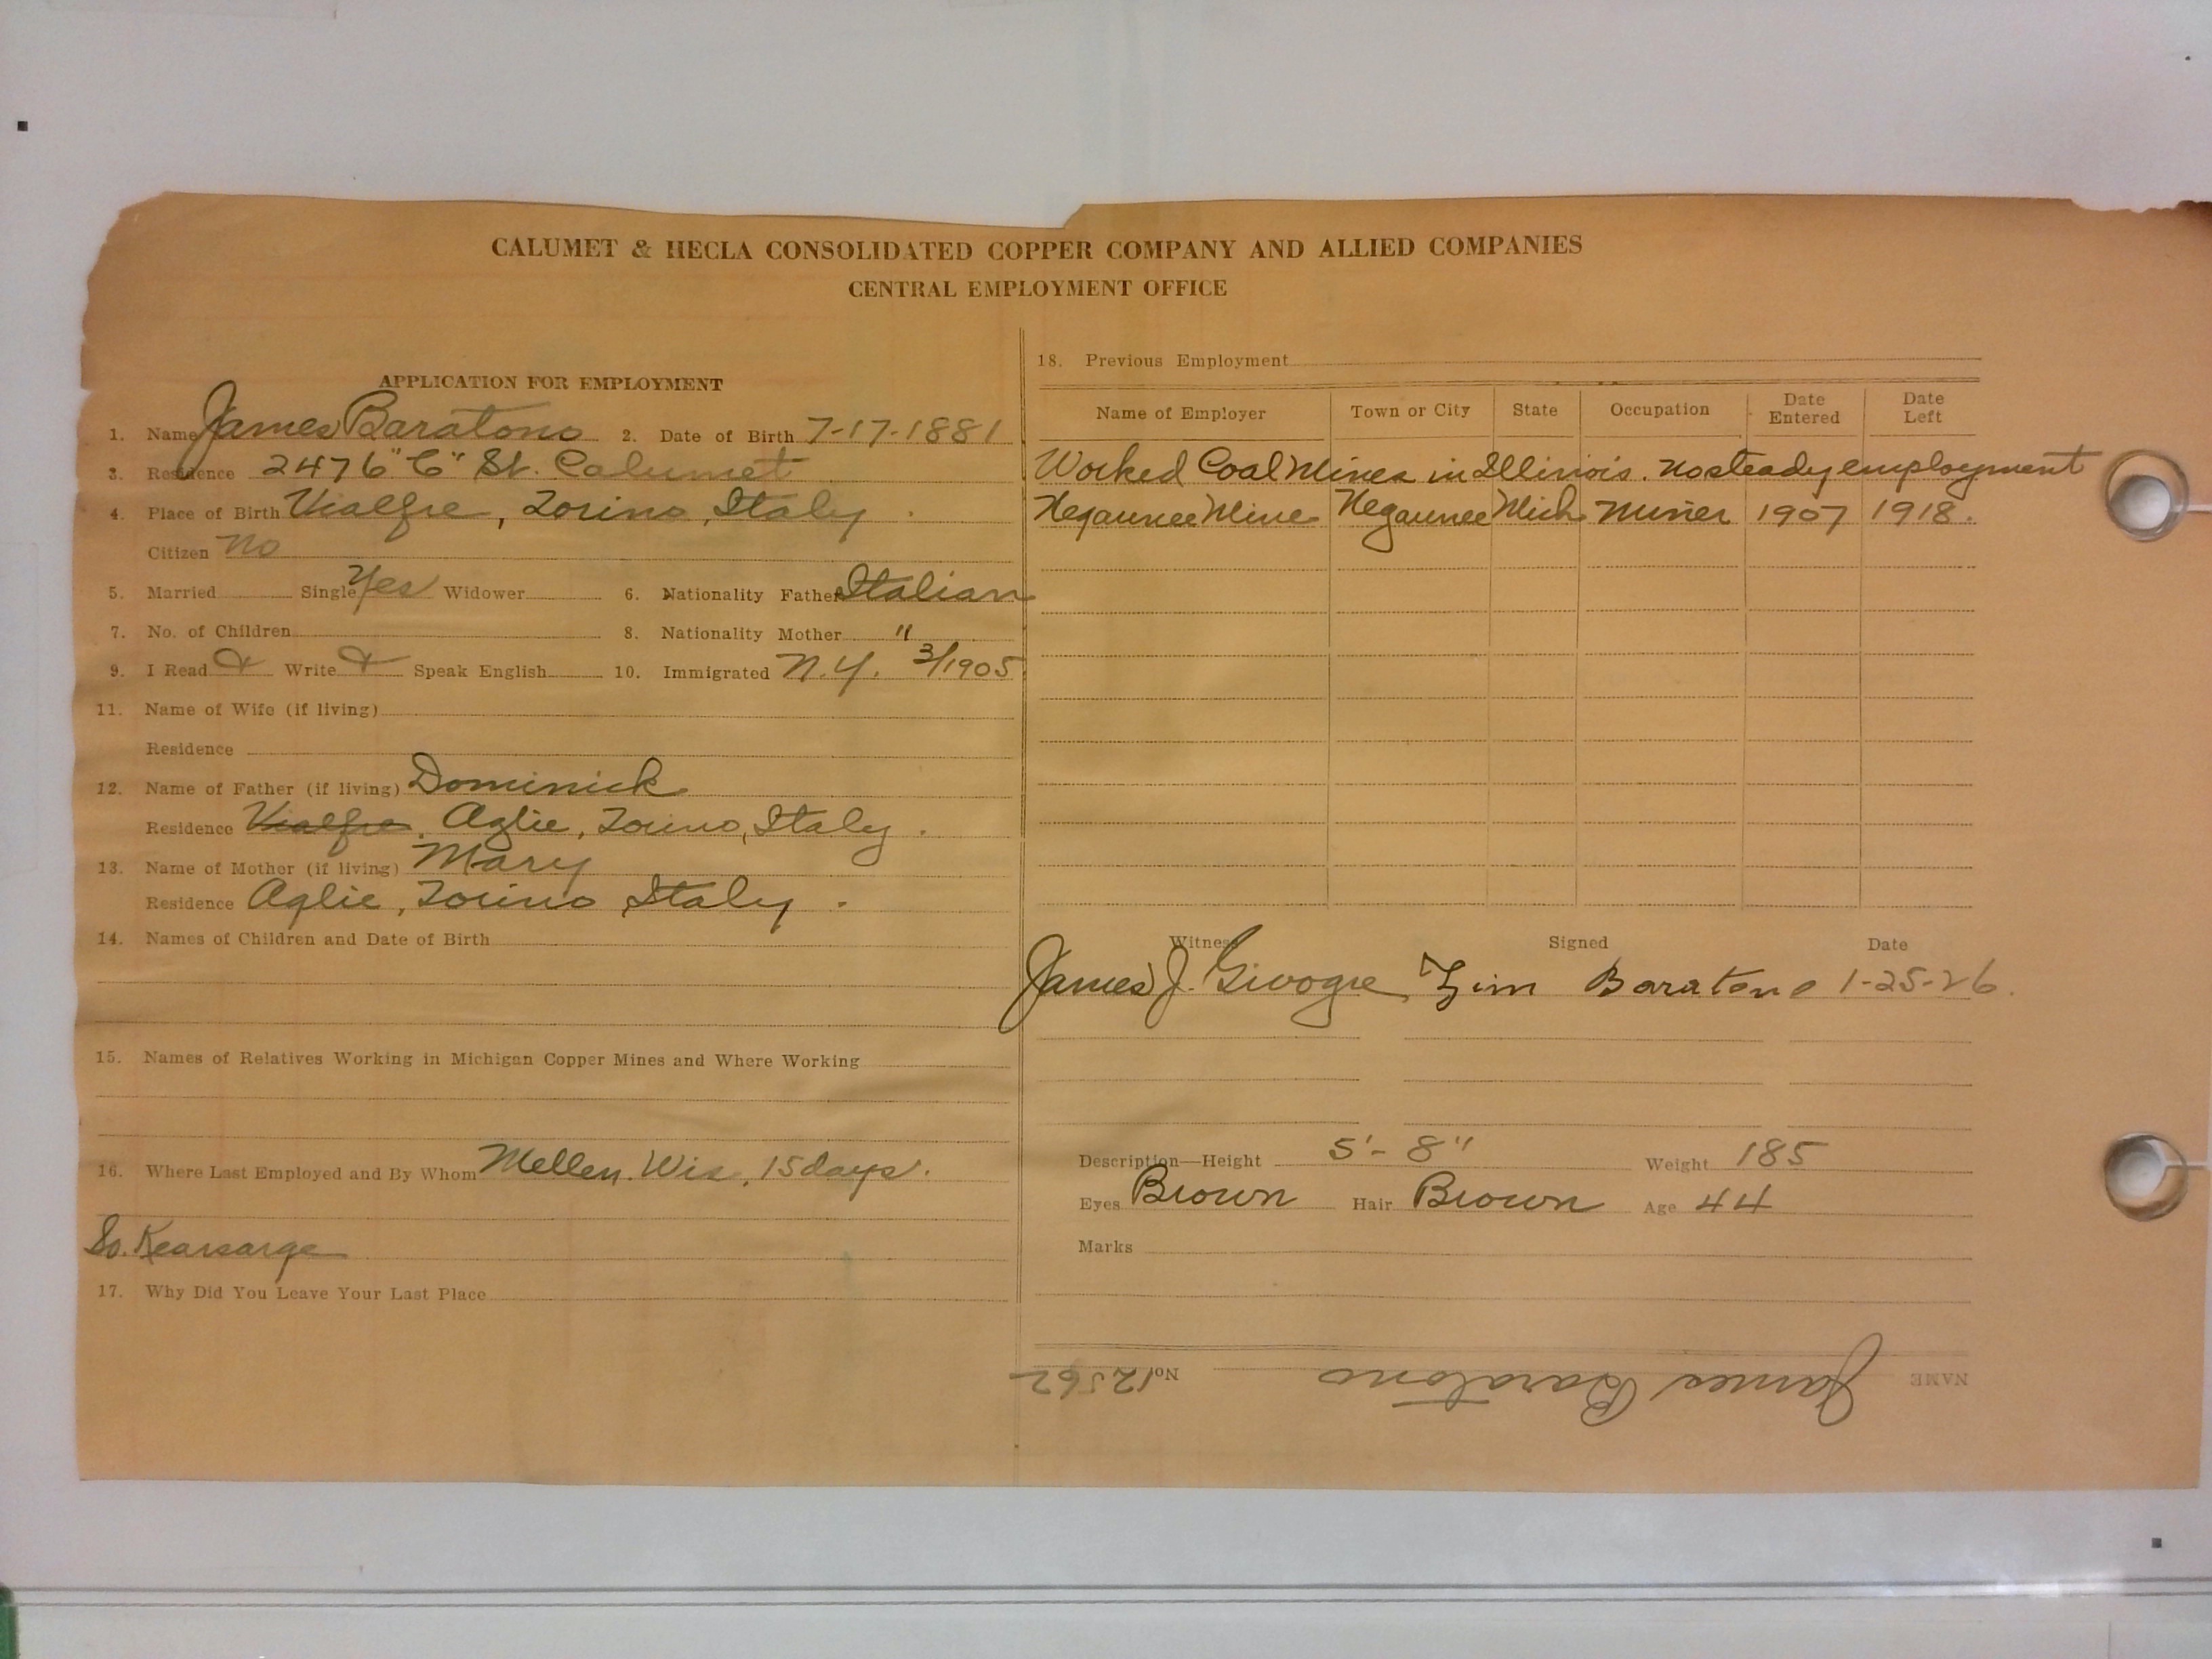 CALUMET & HECLA CONSOLIDATED COPPER COMPANY AND ALLIED COMPANIES
CENTRAL EMPLOYMENT OFFICE
APPLICATION FOR EMPLOYMENT
1. Name James Baratono 2. Date of Birth 7-17-1881
3. Residence 2476 "C" St. Calumet
4. Place of Birth Vialfre, Torino, Italy.
Citizen No
5. Married Single Yes Widower 6. Nationality Father Italian
7. No. of Children 8. Nationality Mother "
9. I Read Write Speak English 10. Immigrated N.Y. 3/1905
11. Name of Wife (if living)
Residence
12. Name of Father (if living) Dominick
Residence Vialfre. Aglie, Torino, Italy.
13. Name of Mother (if living) Mary
Residence Aglie, Torino Italy.
14. Names of Children and Date of Birth
15. Names of Relatives Working in Michigan Copper Mines and Where Working
16. Where Last Employed and By Whom Mellen. Wis, 15 days.
So. Kearsarge
17. Why Did You Leave Your Last Place
18. Previous Employment
Name of Employer Town or City State Occupation Date Entered Date Left
Worked Coal Mines in Illinois. No steady employment
Negaunee Mine Negaunee Mich Miner 1907 1918.
Witness Signed Date
James J. Givogre Jim Baratono 1-25-26.
Description—Height 5'-8" Weight 185
Eyes Brown Hair Brown Age 44
Marks
NAME James Baratono No. 12562